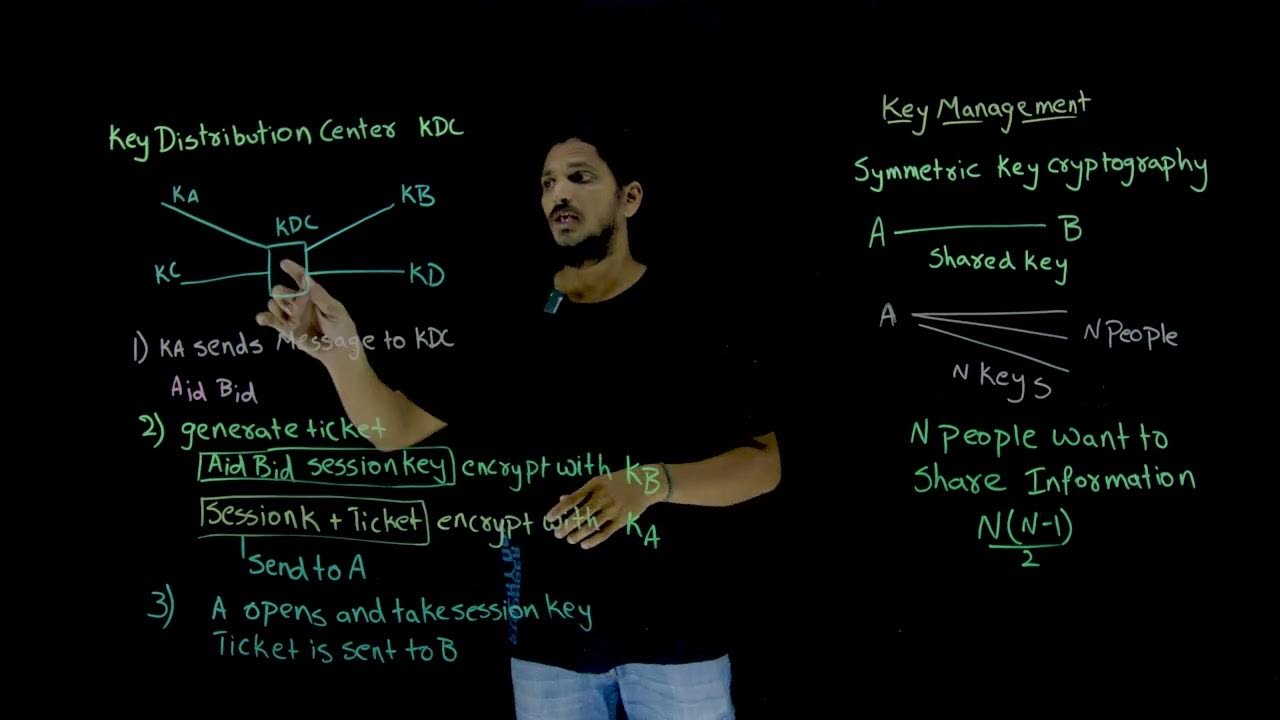 Key Distribution Center KDC
KA
KB
KDC
KC
KD
1) KA sends Message to KDC
Aid Bid
2) generate ticket
Aid Bid session key encrypt with KB
Session K + Ticket encrypt with KA
Send to A
3) A opens and take session key
Ticket is sent to B
Key Management
Symmetric Key cryptography
A B
Shared Key
A
N People
N Keys
N People want to
Share Information
N(N-1)
2